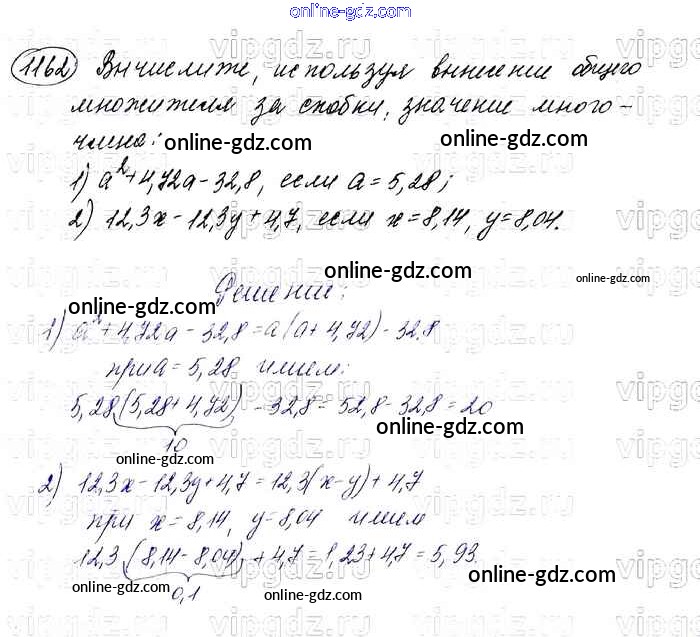 online-gdz.com
1162 Вычислите, используя вынесение общего
множителя за скобки, значение много-
члена:
online-gdz.com
online-gdz.com
1) a² + 4,72a - 32,8, если a = 5,28;
2) 12,3x - 12,3y + 4,7, если x = 8,14, y = 8,04.
online-gdz.com
online-gdz.com
Решение:
online-gdz.com
1) a² + 4,72a - 32,8 = a(a + 4,72) - 32,8
при a = 5,28 имеем:
5,28(5,28 + 4,72) - 32,8 = 52,8 - 32,8 = 20
10
online-gdz.com
online-gdz.com
2) 12,3x - 12,3y + 4,7 = 12,3(x - y) + 4,7
при x = 8,14, y = 8,04 имеем
12,3 (8,14 - 8,04) + 4,7 = 1,23 + 4,7 = 5,93.
0,1
online-gdz.com
online-gdz.com
online-gdz.com
vipgdz.ru